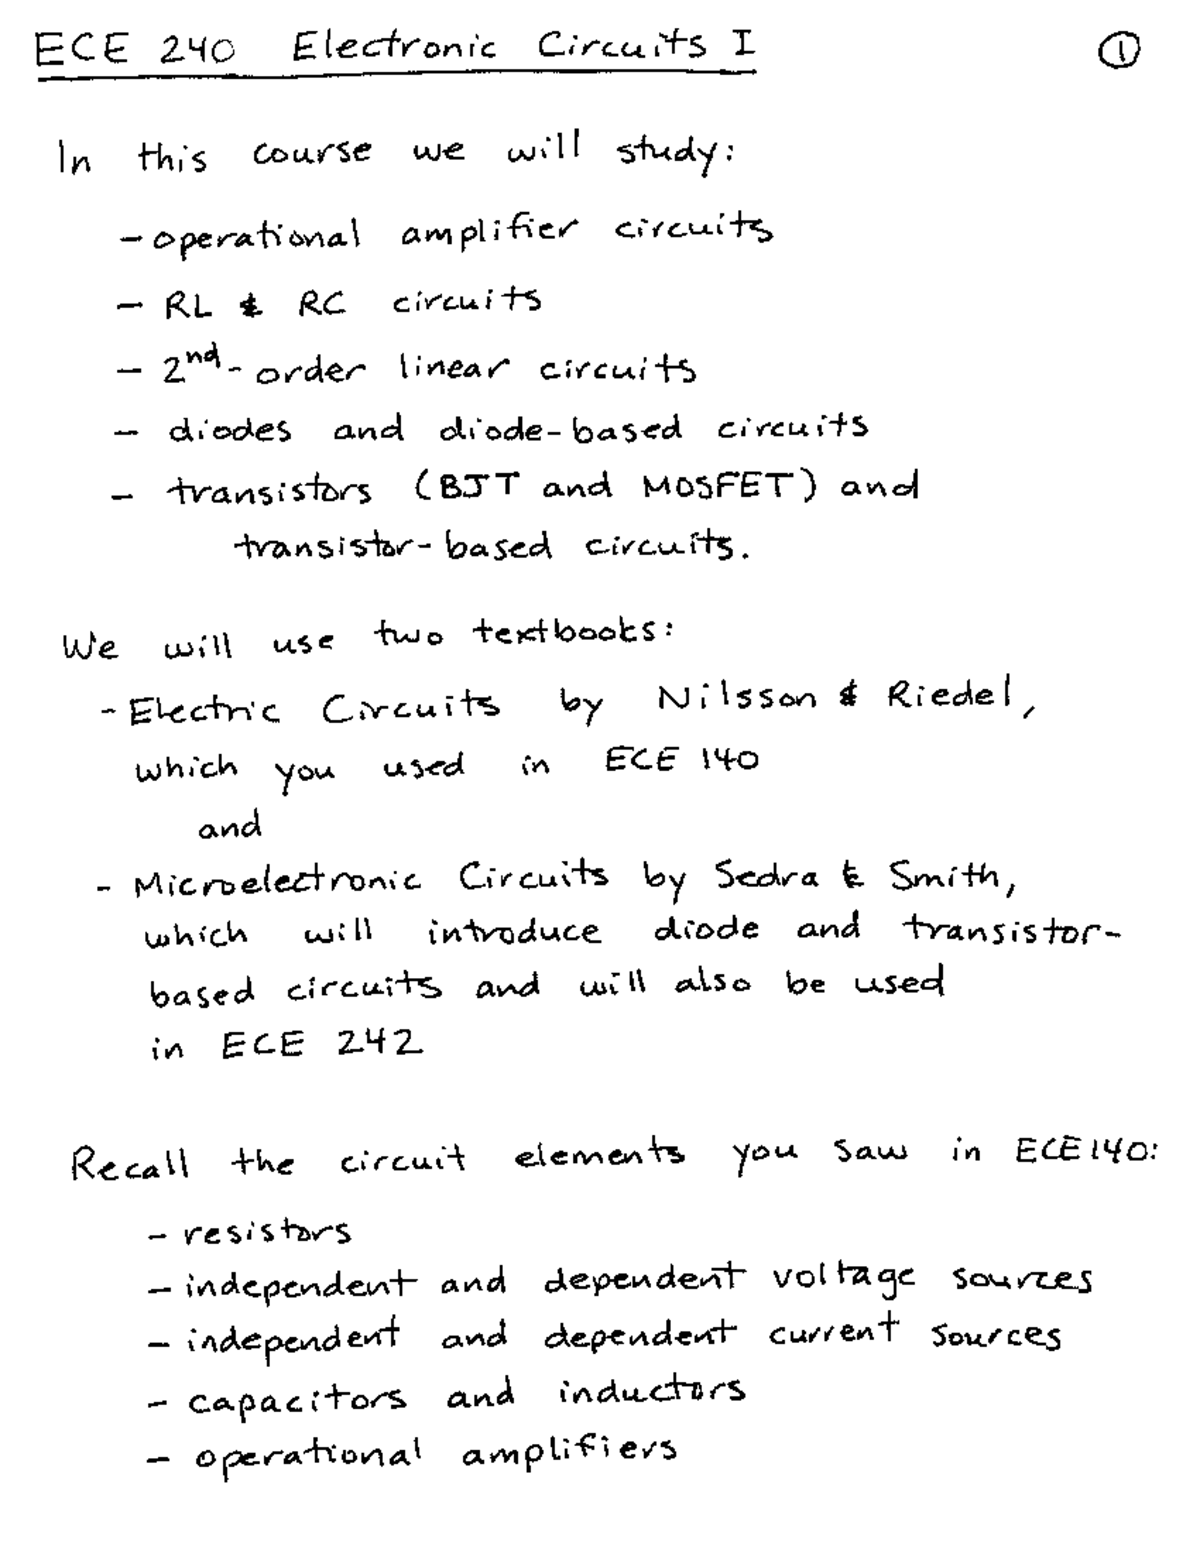 ECE 240 Electronic Circuits I ①
In this course we will study:
- operational amplifier circuits
- RL & RC circuits
- 2nd-order linear circuits
- diodes and diode-based circuits
- transistors (BJT and MOSFET) and
transistor-based circuits.
We will use two textbooks:
- Electric Circuits by Nilsson & Riedel,
which you used in ECE 140
and
- Microelectronic Circuits by Sedra & Smith,
which will introduce diode and transistor-
based circuits and will also be used
in ECE 242
Recall the circuit elements you saw in ECE 140:
- resistors
- independent and dependent voltage sources
- independent and dependent current sources
- capacitors and inductors
- operational amplifiers